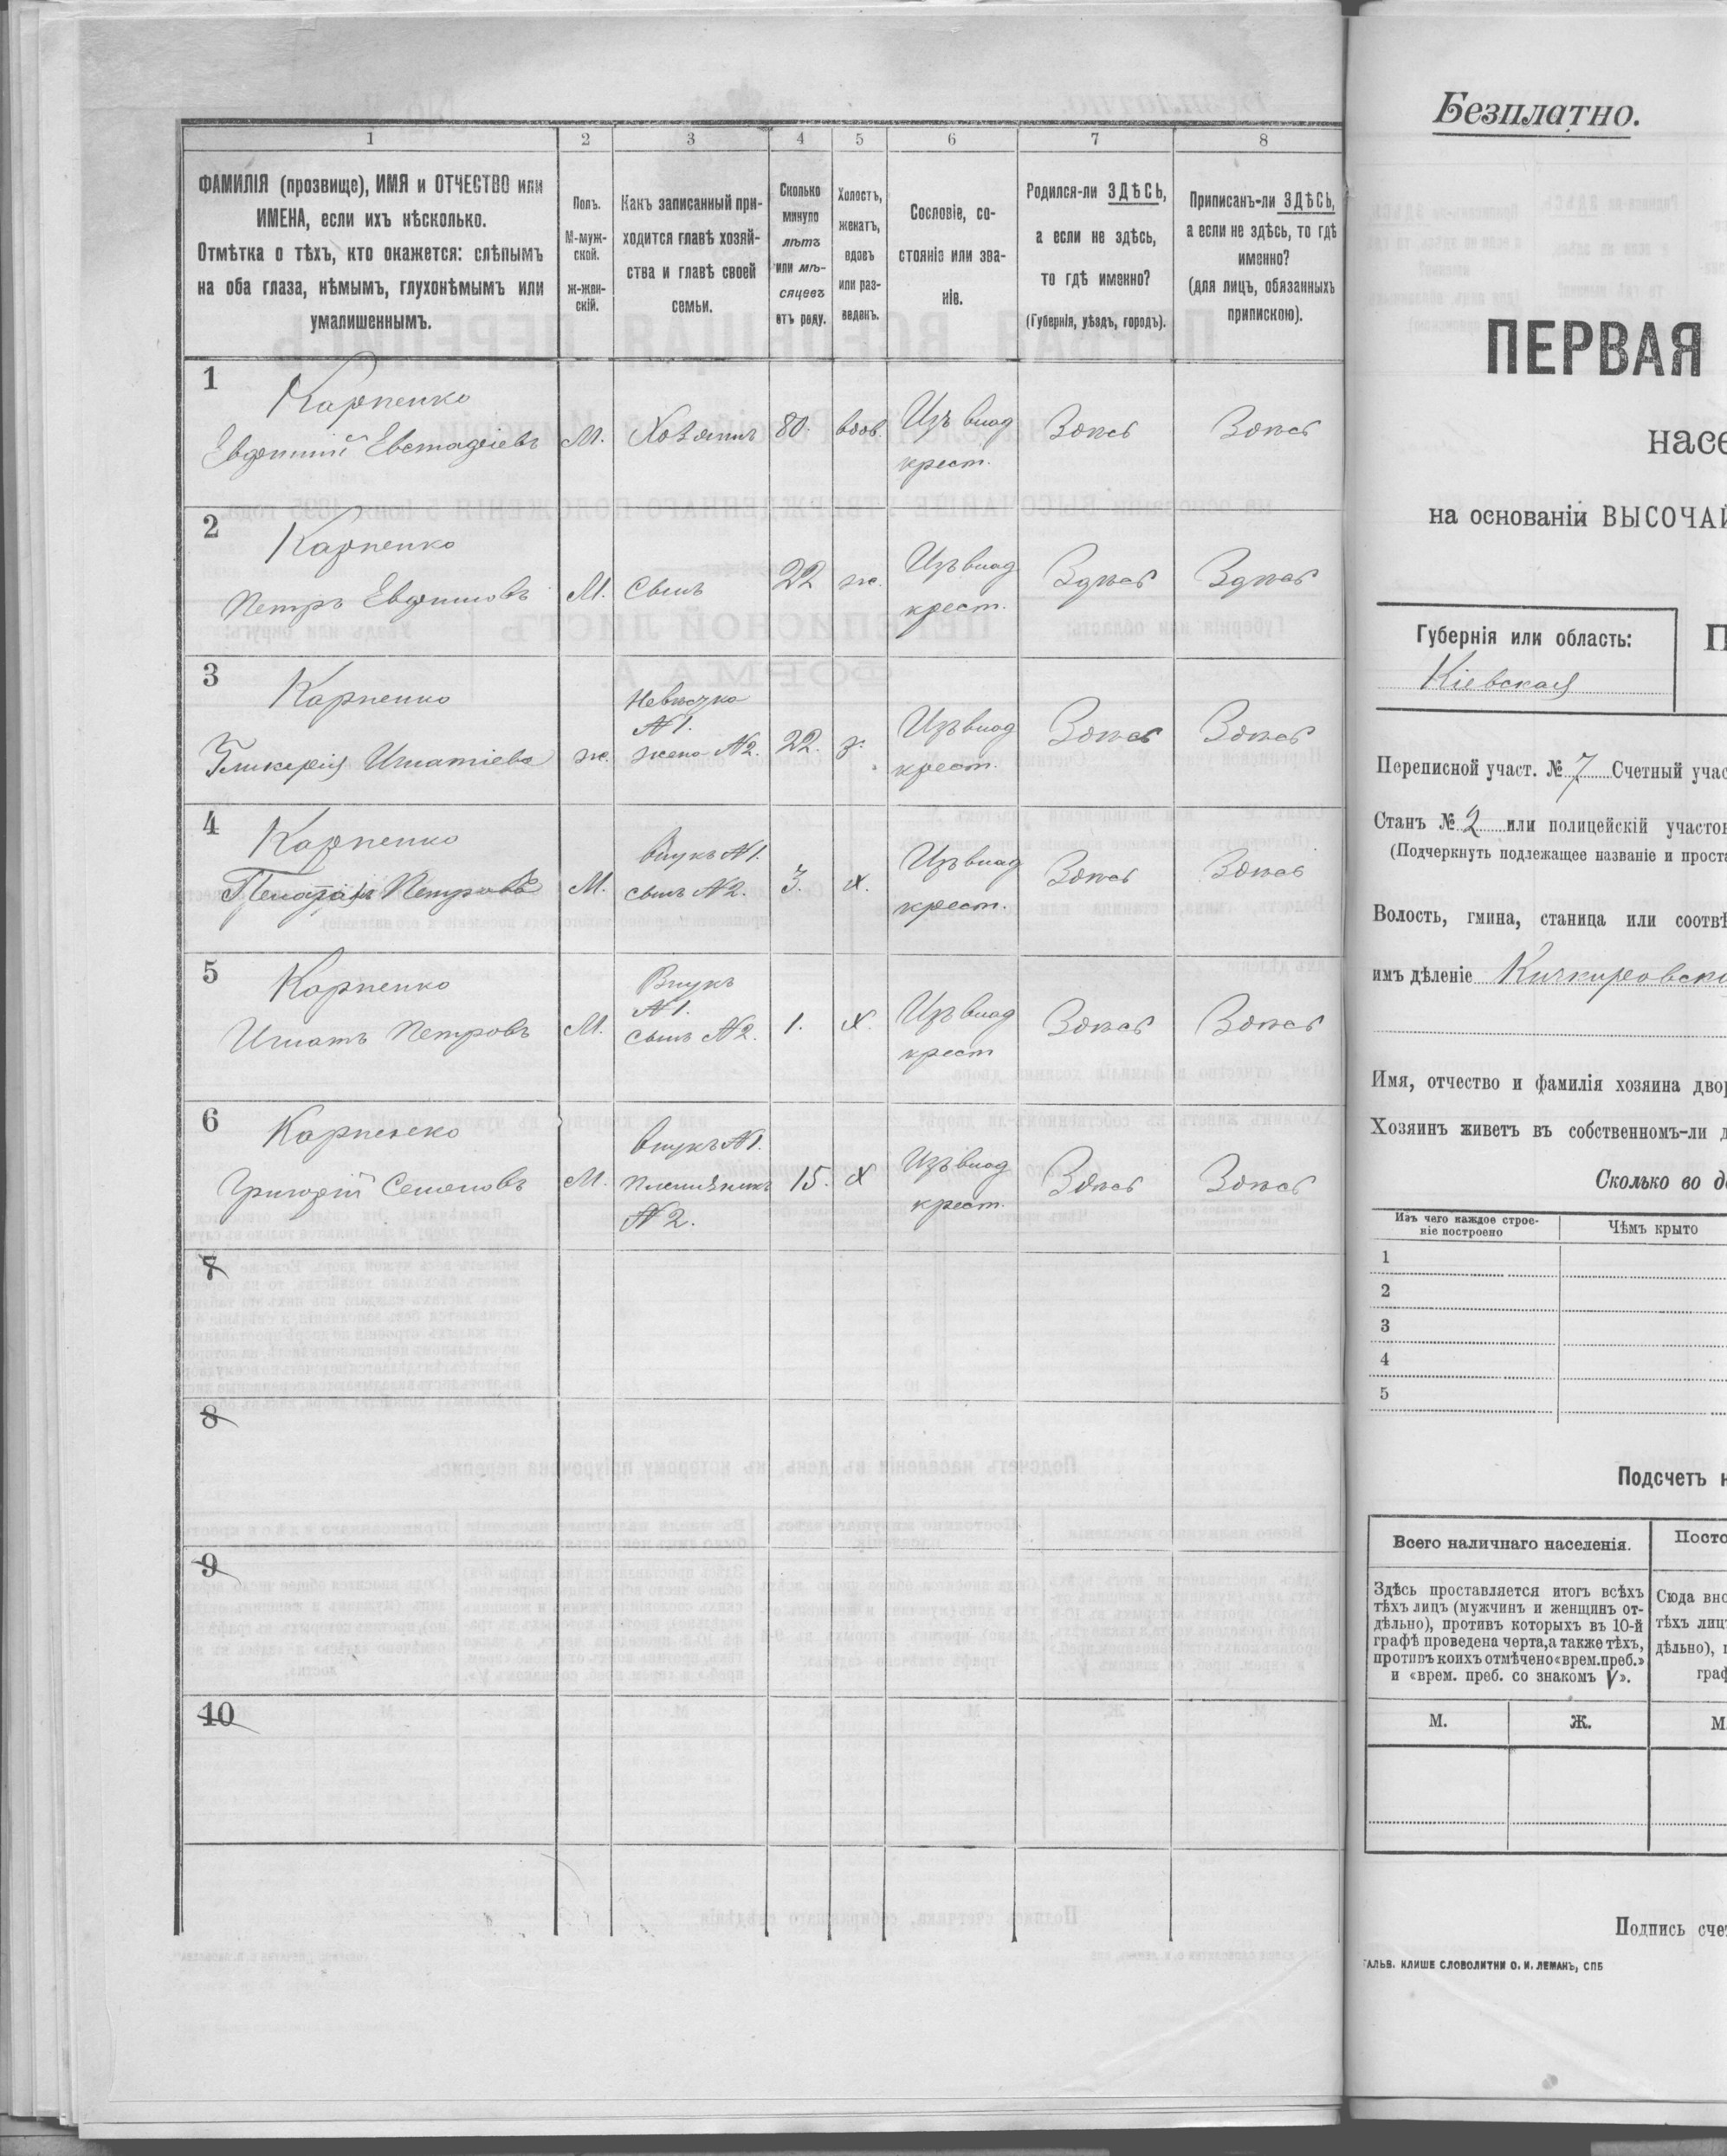 1 2 3 4 5 6 7 8
ФАМИЛІЯ (прозвище), ИМЯ и ОТЧЕСТВО или
ИМЕНА, если ихъ нѣсколько.
Отмѣтка о тѣхъ, кто окажется: слѣпымъ
на оба глаза, нѣмымъ, глухонѣмымъ или
умалишеннымъ.
Полъ.
М-муж-
ской.
ж-жен-
скій.
Какъ записанный при-
ходится главѣ хозяй-
ства и главѣ своей
семьи.
Сколько
минуло
лѣтъ
или мѣ-
сяцевъ
отъ роду.
Холостъ,
женатъ,
вдовъ
или раз-
веденъ.
Сословіе, со-
стояніе или зва-
ніе.
Родился-ли ЗДѢСЬ,
а если не здѣсь,
то гдѣ именно?
(Губернія, уѣздъ, городъ).
Приписанъ-ли ЗДѢСЬ,
а если не здѣсь, то гдѣ
именно?
(для лицъ, обязанныхъ
припискою).
1
Карпенко
Евфимій Евстафіевъ
М.
Хозяинъ
80.
вдов.
Изъ влад
крест.
Здѣсь
Здѣсь
2
Карпенко
Петръ Евфимовъ
М.
Сынъ
22
ж.
Изъ влад
крест.
Здѣсь
Здѣсь
3
Карпенко
Гликерія Игнатіева
ж.
Невѣстка
№ 1.
жена № 2.
22.
з.
Изъ влад
крест.
Здѣсь
Здѣсь
4
Карпенко
Петровъ
М.
Внукъ № 1.
сынъ № 2.
3.
х.
Изъ влад
крест.
Здѣсь
Здѣсь
5
Карпенко
Игнатъ Петровъ
М.
Внукъ
№ 1.
Сынъ № 2.
1.
х.
Изъ влад
крест
Здѣсь
Здѣсь
6
Карпенко
Григорій Семеновъ
М.
Внукъ № 1.
Племянникъ
№ 2.
15.
х
Изъ влад
крест.
Здѣсь
Здѣсь
7
8
9
10
Безплатно.
ПЕРВАЯ
насе
на основаніи ВЫСОЧАЙ
Губернія или область:
Кіевская
П
Переписной участ. № 7 Счетный учас
Станъ № 2 или полицейскій участок
(Подчеркнуть подлежащее названіе и проста
Волость, гмина, станица или соотвѣ
имъ дѣленіе Кичкировск
Имя, отчество и фамилія хозяина двор
Хозяинъ живетъ въ собственномъ-ли д
Сколько во д
Изъ чего каждое строе-
ніе построено
Чѣмъ крыто
1
2
3
4
5
Подсчетъ н
Всего наличнаго населенія.
Посто
Здѣсь проставляется итогъ всѣхъ
тѣхъ лицъ (мужчинъ и женщинъ от-
дѣльно), противъ которыхъ въ 10-й
графѣ проведена черта, а также тѣхъ,
противъ коихъ отмѣчено «врем. преб.»
и «врем. преб. со знакомъ V».
Сюда вно
тѣхъ лицъ
дѣльно), п
граф
М. Ж. М
Подпись счет
ГАЛЬВ. КЛИШЕ СЛОВОЛИТНИ О. И. ЛЕМАНЪ, СПБ